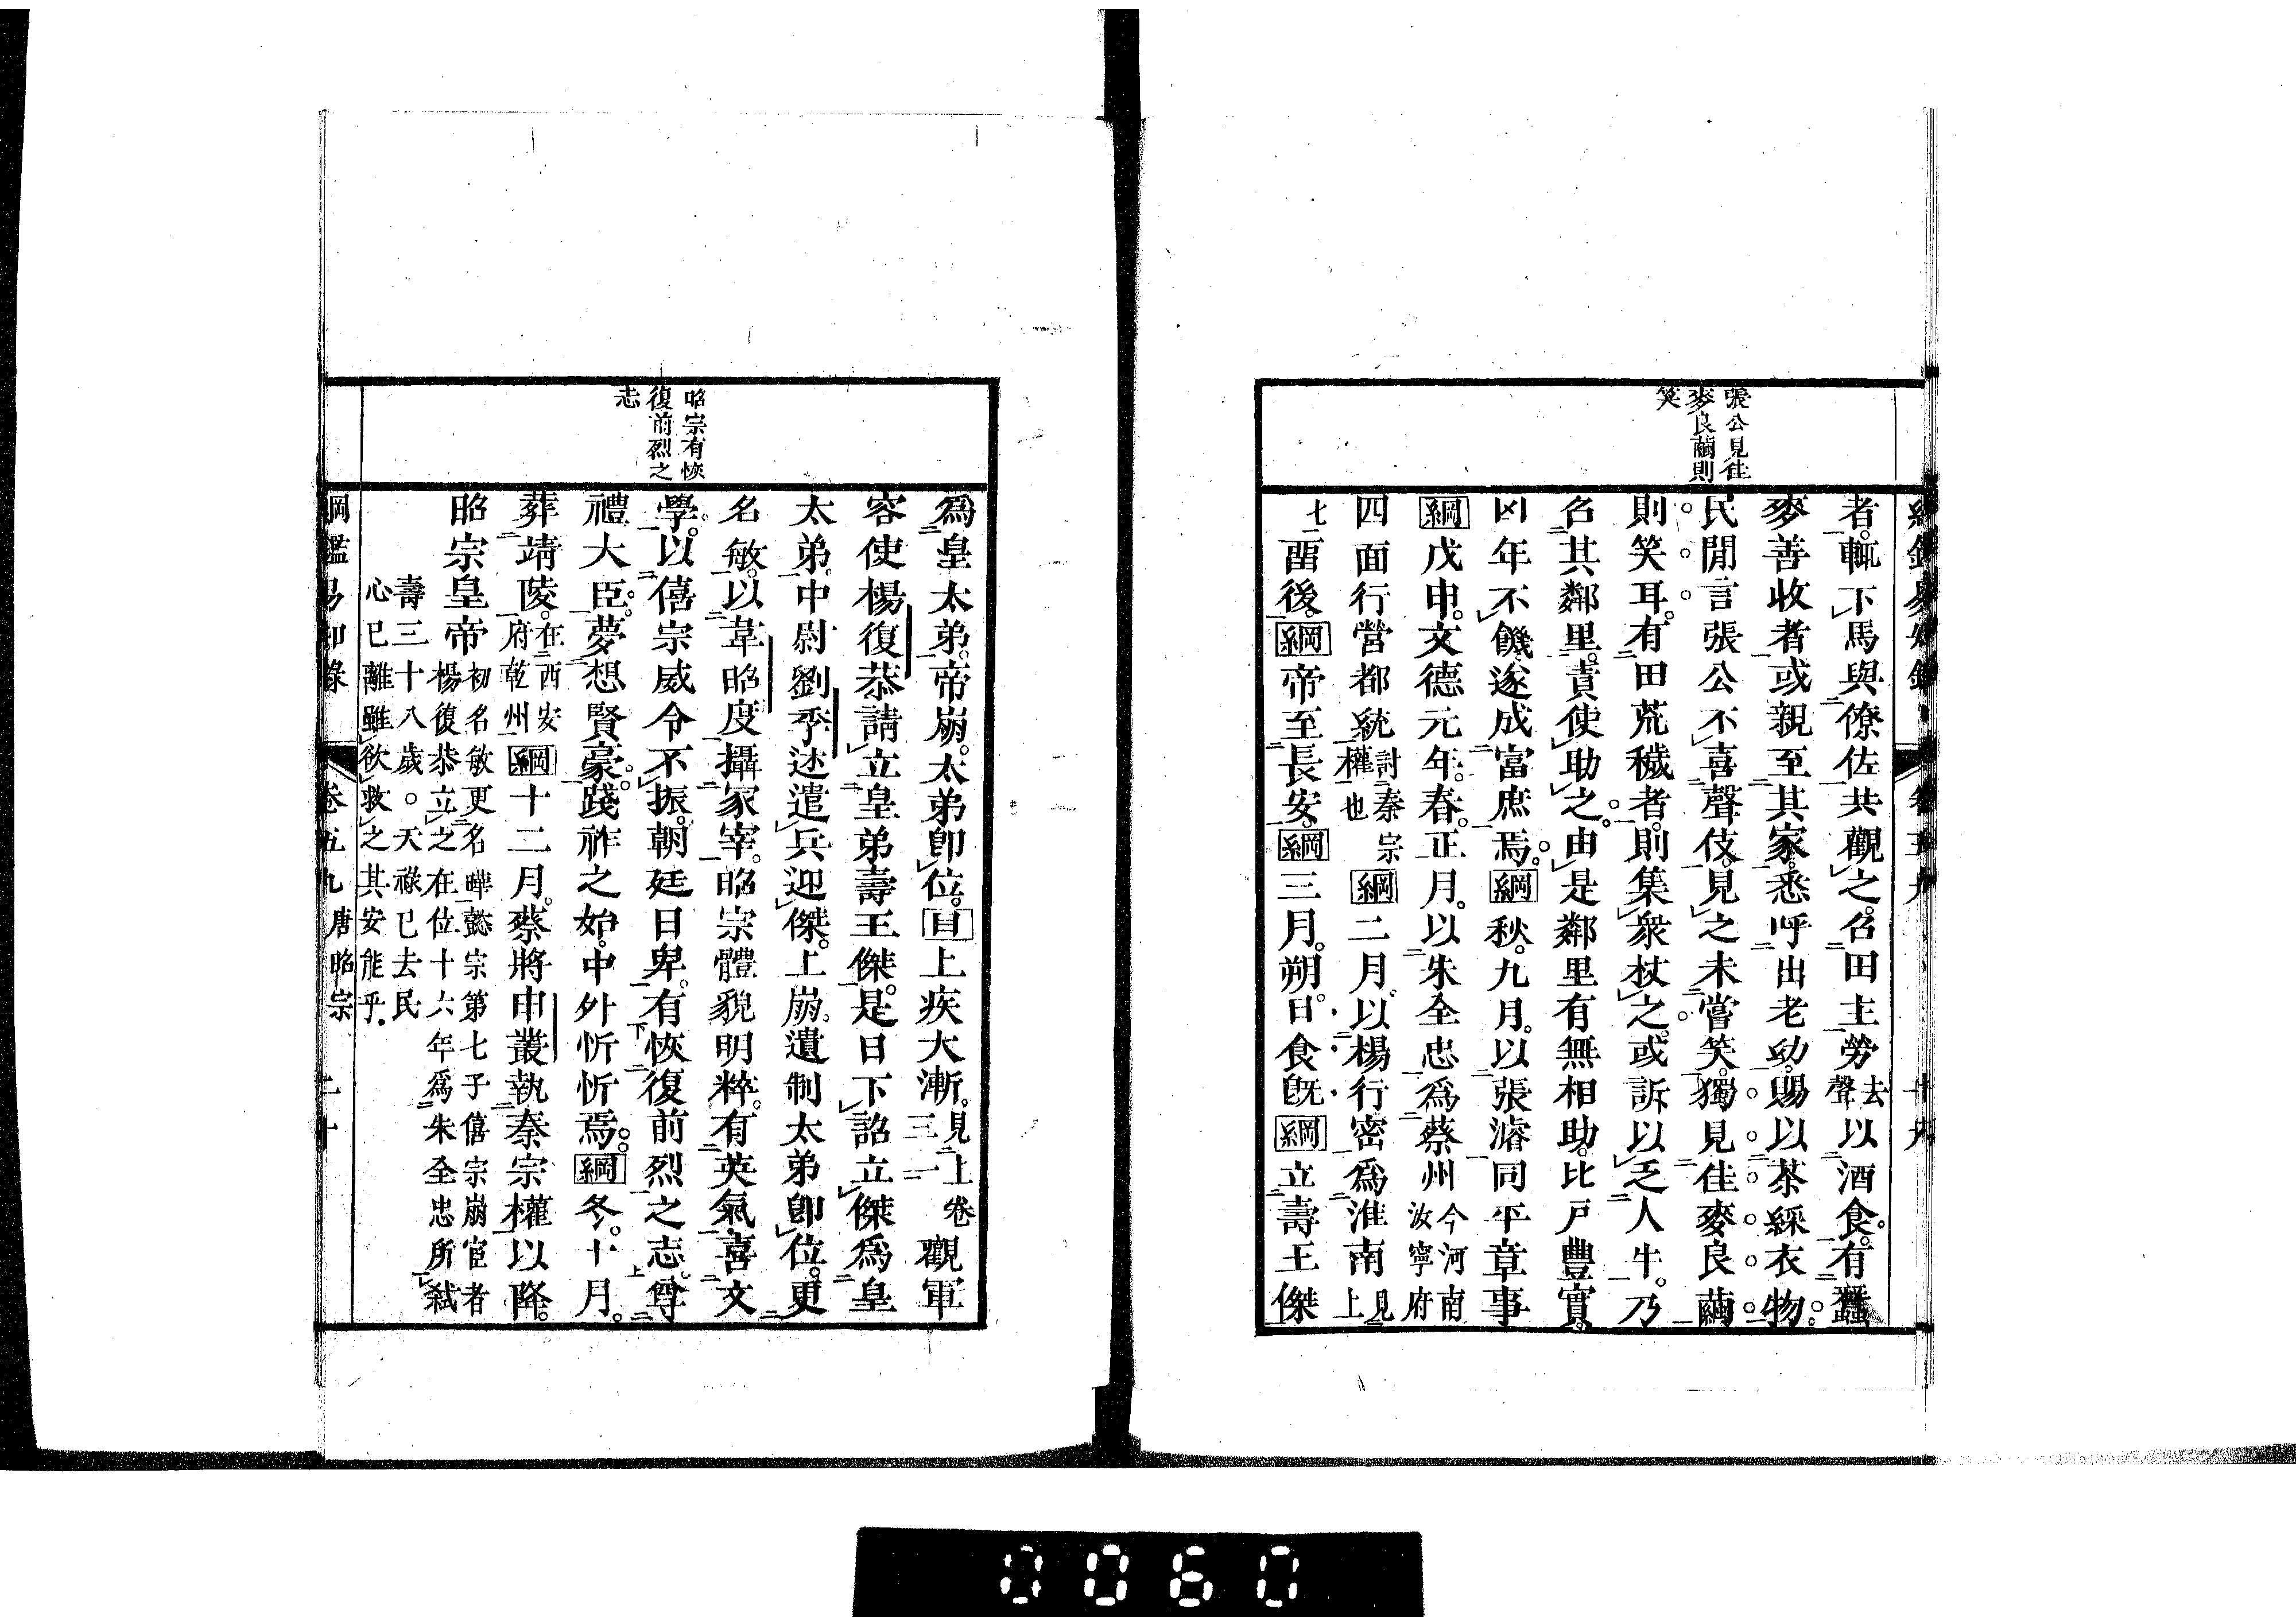 張公見佳
麥良繭則
笑
者。輒下馬與僚佐共觀之。召田主勞去聲以酒食。有蠶
麥善收者。或親至其家。悉呼出老幼。賜以茶綵衣物。
民間言張公不喜聲伎。見之未嘗笑。獨見佳麥良繭
則笑耳。有田荒穢者。則集衆杖之。或訴以乏人牛。乃
召其鄰里。責使助之。由是鄰里有無相助。比戸豐實。
凶年不饑。遂成富庶焉。綱秋。九月。以張濬同平章事
綱戊申。文德元年。春。正月。以朱全忠爲蔡州今河南汝寧府
四面行營都統討秦宗權也綱二月。以楊行密爲淮南見上
七畱後。綱帝至長安。綱三月。朔。日食旣綱立壽王傑
昭宗有恢
復前烈之
志
爲皇太弟。帝崩。太弟卽位。目上疾大漸。見上卷三觀軍
容使楊復恭請立皇弟壽王傑。是日下詔立傑爲皇
太弟。中尉劉季述遣兵迎傑。上崩。遺制太弟卽位。更
名敏。以韋昭度攝冢宰。昭宗體貌明粹。有英氣。喜文
學。以僖宗威令不振。朝廷日卑。有恢復前烈之志。尊
禮大臣。夢想賢豪。踐祚之始。中外忻忻焉。綱冬。十月。
葬靖陵。在西安府乾州綱十二月。蔡將申叢執秦宗權以降。
昭宗皇帝初名敏更名曄懿宗第七子僖宗崩宦者
楊復恭立之在位十六年爲朱全忠所弑
壽三十八歲。天祿已去民
心已離雖欲救之其安能乎。
綱鑑易知錄 卷五九唐昭宗 二十